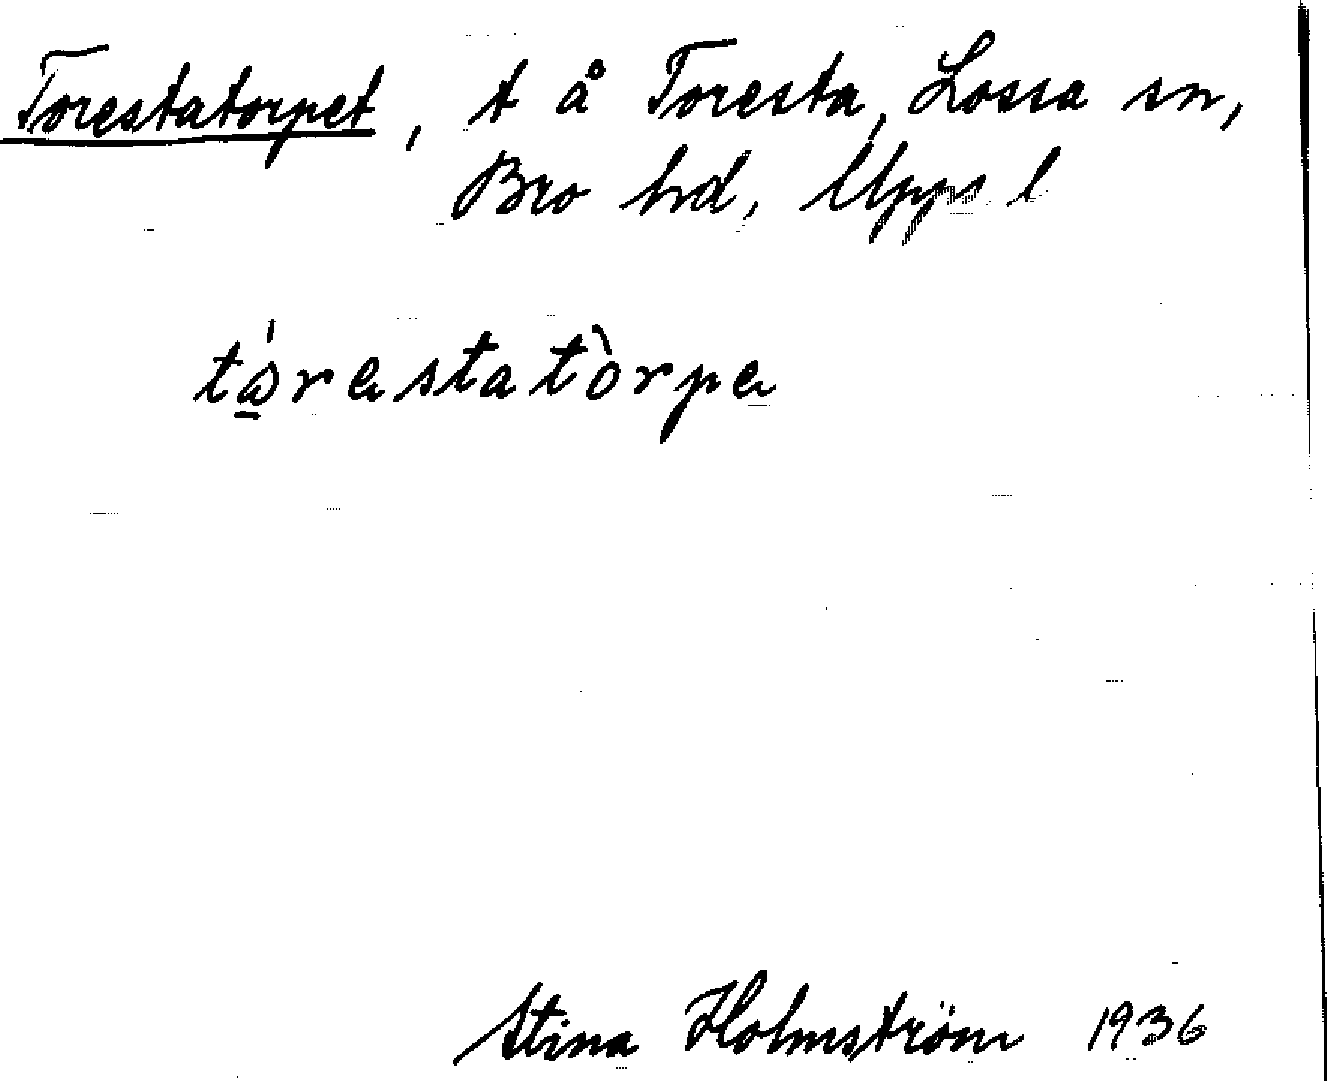 Torestatorpet, t å Toresta, Lossa sn,
Bro hd, Upps l
tώ̲restatòrpe
Stina Holmström 1936